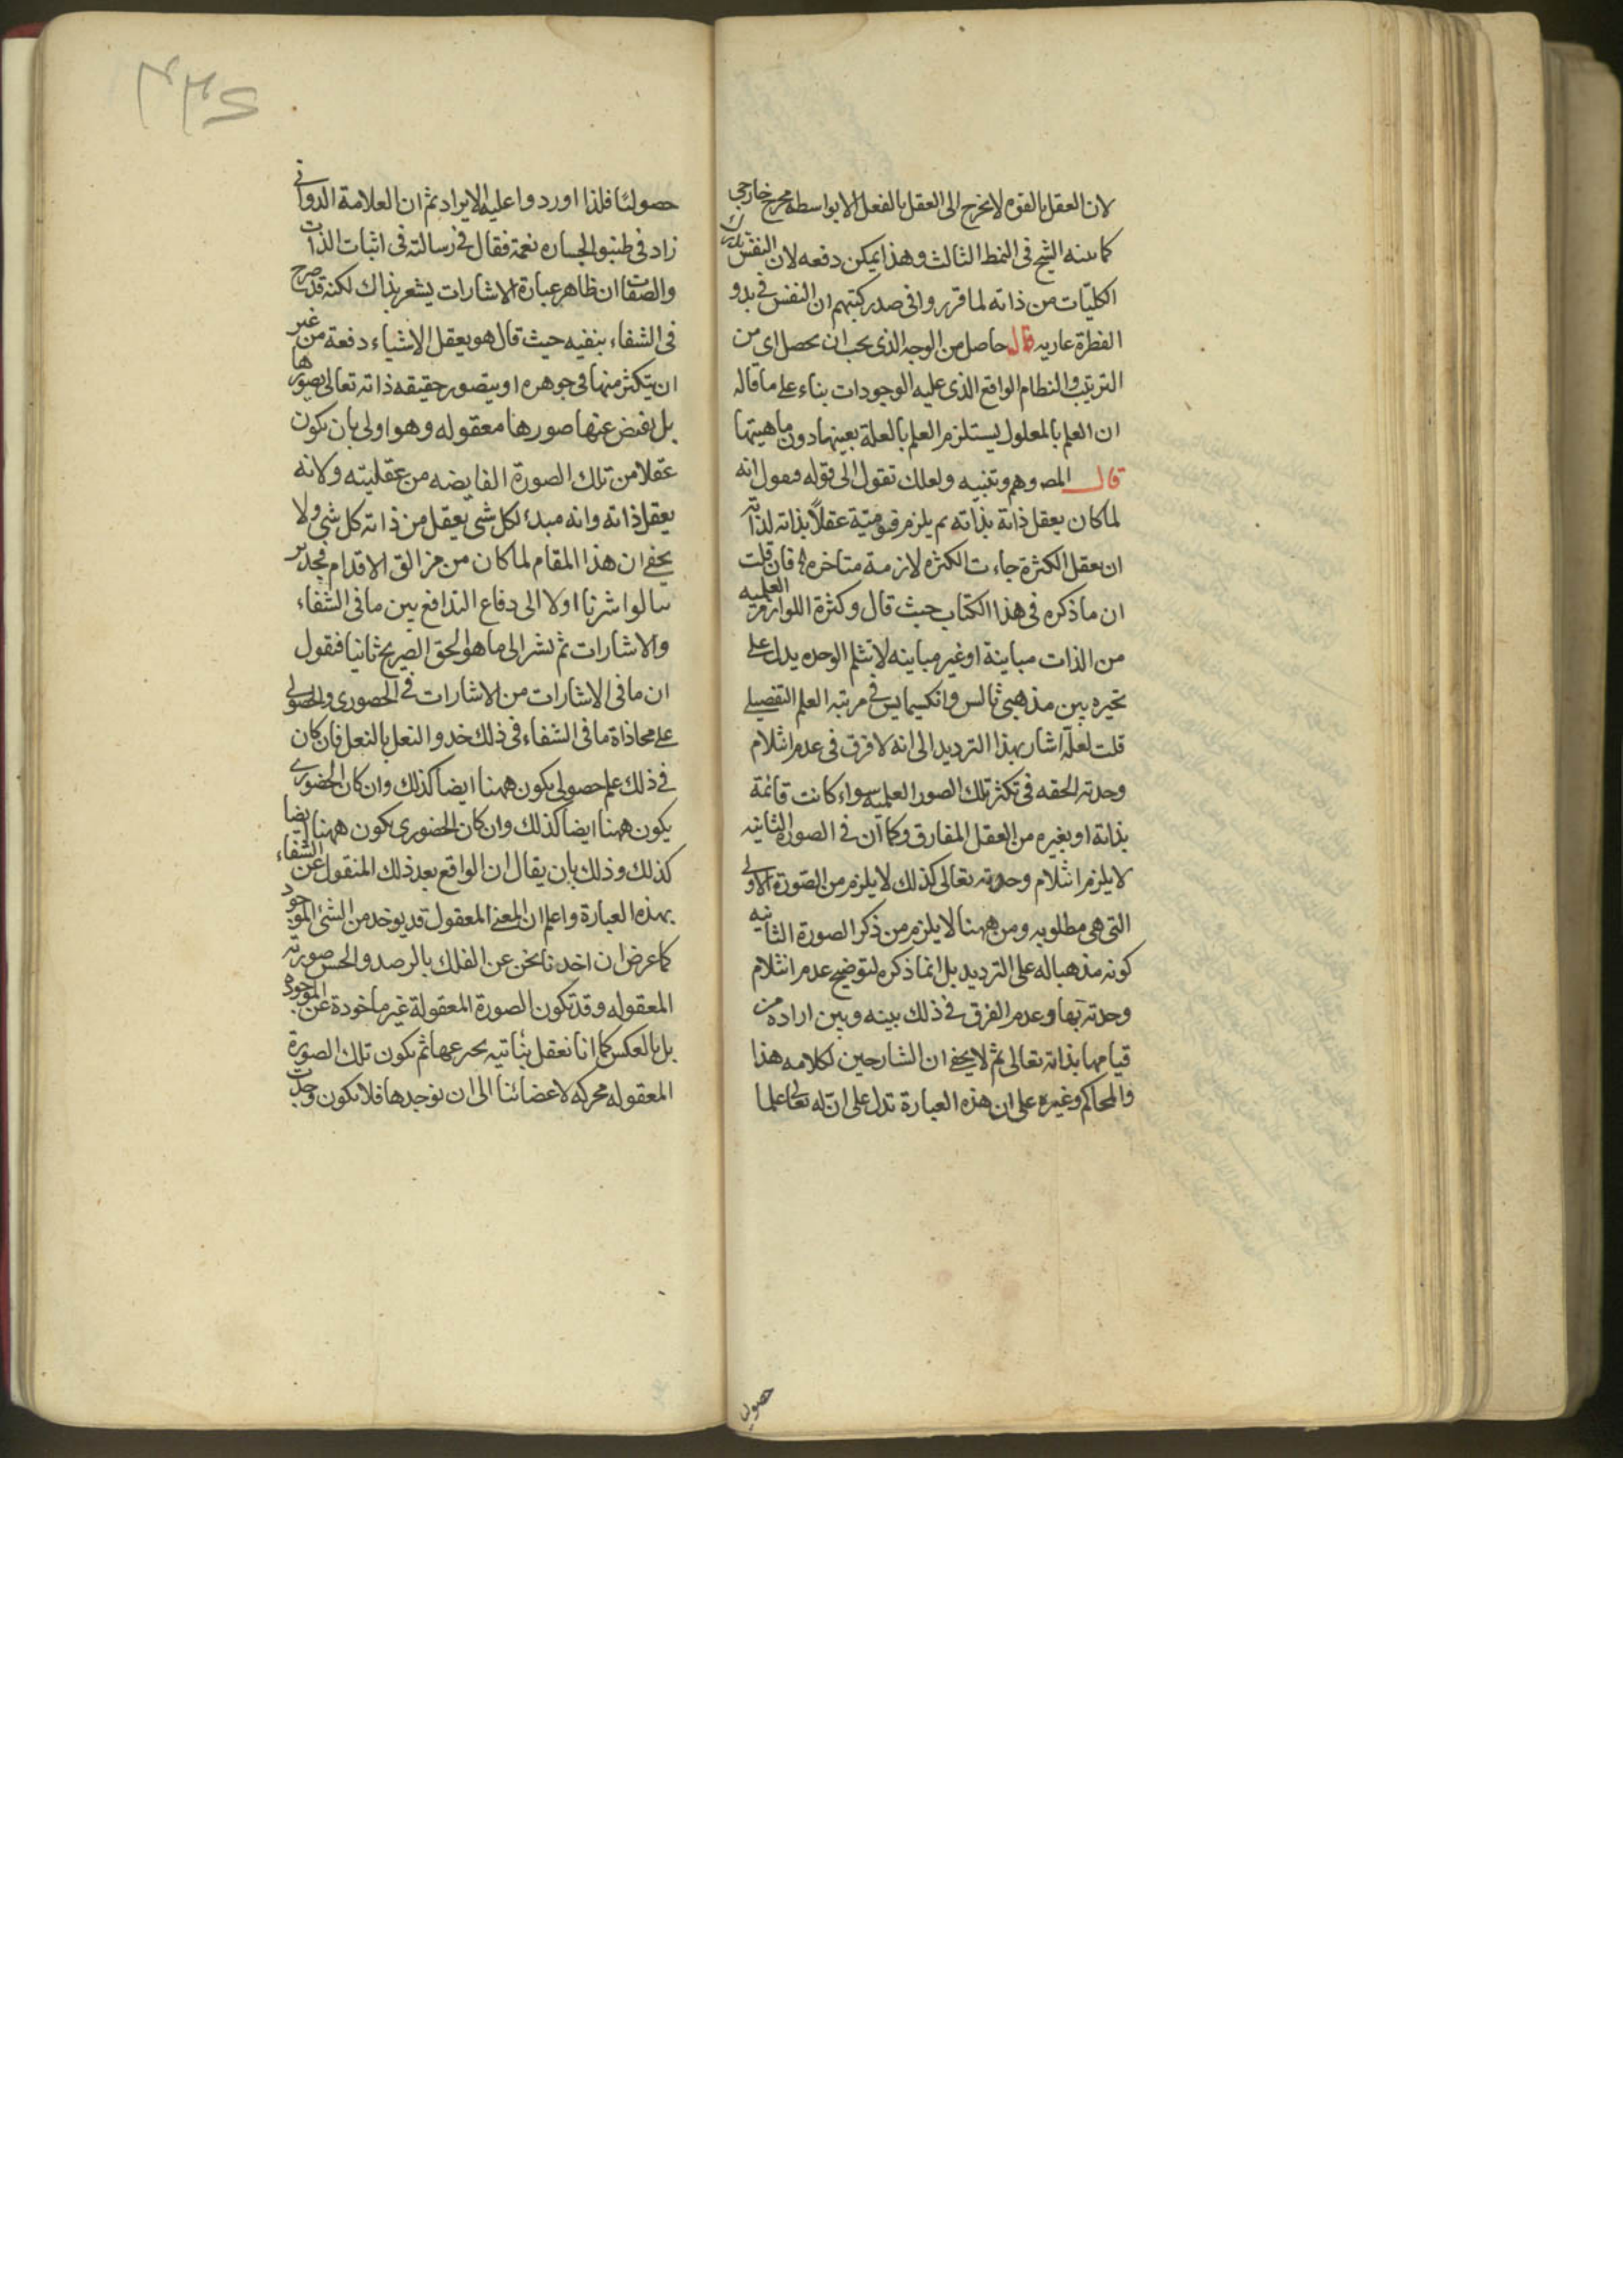 لان العقل بالقوه لا يخرج الى العقل بالفعل الا بواسطه مخرج خارجى
كما بينه الشيخ فى النمط الثالث وهذا يمكن دفعه لان النفس تدرك
الكليات من ذاته لما قرروا فى صدر كتبهم ان النفس فى بدو
الفطرة عاريه قال حاصل من الوجه الذى يجب ان يحصل اى من
الترتيب والنظام الواقع الذى عليه الوجودات بناء على ما قاله
ان العلم بالمعلول يستلزم العلم بالعلة بعينها دون ماهيتها
قال المص وهم وتنبيه ولعلك تقول الى قوله فيقول انه
لما كان يعقل ذاته بذاته ثم يلزم قيوميته عقلاً بذاته لذاته
ان يعقل الكثرة جاءت الكثرة لازمة متاخره فان قلت
ان ما ذكره فى هذا الكتاب حيث قال وكثرة اللوازم العلميه
من الذات مباينة او غير مباينه لا تثلم الوحده يدل على
تحيره بين مذهبى ثالس وانكسيمايس فى مرتبه العلم التفصيلى
قلت لعله اشار بهذا الترديد الى انه لا فرق فى عدم انثلام
وحدته الحقه فى تكثر تلك الصور العلميه سواء كانت قائمة
بذاته او بغيره من العقل المفارق وكما ان فى الصورة الثانيه
لا يلزم انثلام وحدته تعالى كذلك لا يلزم من الصورة الاولى
التى هى مطلوبه ومن ههنا لا يلزم من ذكر الصورة الثانيه
كونه مذهبا له على الترديد بل انما ذكره لتوضيح عدم انثلام
وحدته بها وعدم الفرق فى ذلك بينه وبين اراده من
قيامها بذاته تعالى ثم لا يخفى ان الشارحين لكلامه هذا
والمحاكم وغيره على ان هذه العبارة تدل على ان له تعالى علما
حصوليا
حصوليا فلذا اوردوا عليه الايراد ثم ان العلامة الدوانى
زاد فى طنبور الجساره نغمة فقال فى رسالته فى اثبات الذات
والصفات ان ظاهر عبارة الاشارات يشعر بذاك لكنه قد صرح
فى الشفاء بنفيه حيث قال هو يعقل الاشياء دفعة من غير
ان يتكثر منها فى جوهره او يتصور حقيقه ذاته تعالى بصورها
بل يفيض عنها صورها معقوله وهو اولى بان يكون
عقلا من تلك الصورة الفايضه من عقليته ولانه
يعقل ذاته وانه مبدء لكل شى يعقل من ذاته كل شى ولا
يخفى ان هذا المقام لما كان من مزالق الاقدام فجدير
بنا لو اشرنا اولا الى دفاع التدافع بين ما فى الشفاء
والاشارات ثم نشر الى ما هو الحق الصريح ثانيا فنقول
ان ما فى الاشارات من الاشارات فى الحصورى والحصولى
على محاذاة ما فى الشفاء فى ذلك خدو النعل بالنعل فان كان
فى ذلك علم حصولى يكون ههنا ايضا كذلك وان كان الحضورى
يكون ههنا ايضا كذلك وان كان الحضورى يكون ههنا ايضا
كذلك وذلك بان يقال ان الواقع بعد ذلك المنقول عن الشفاء
بهذه العبارة واعلم ان المعنى المعقول قد يوخد من الشئ الموجود
كما عرض ان اخدنا نحن عن الفلك بالرصد والحس صورته
المعقوله وقد تكون الصورة المعقولة غير ماخودة عن الموجوده
بل بالعكس كما انا نعقل بنائيه ثم تكون تلك الصورة
المعقوله محركه لاعضائنا الى ان نوجدها فلا تكون وجدت